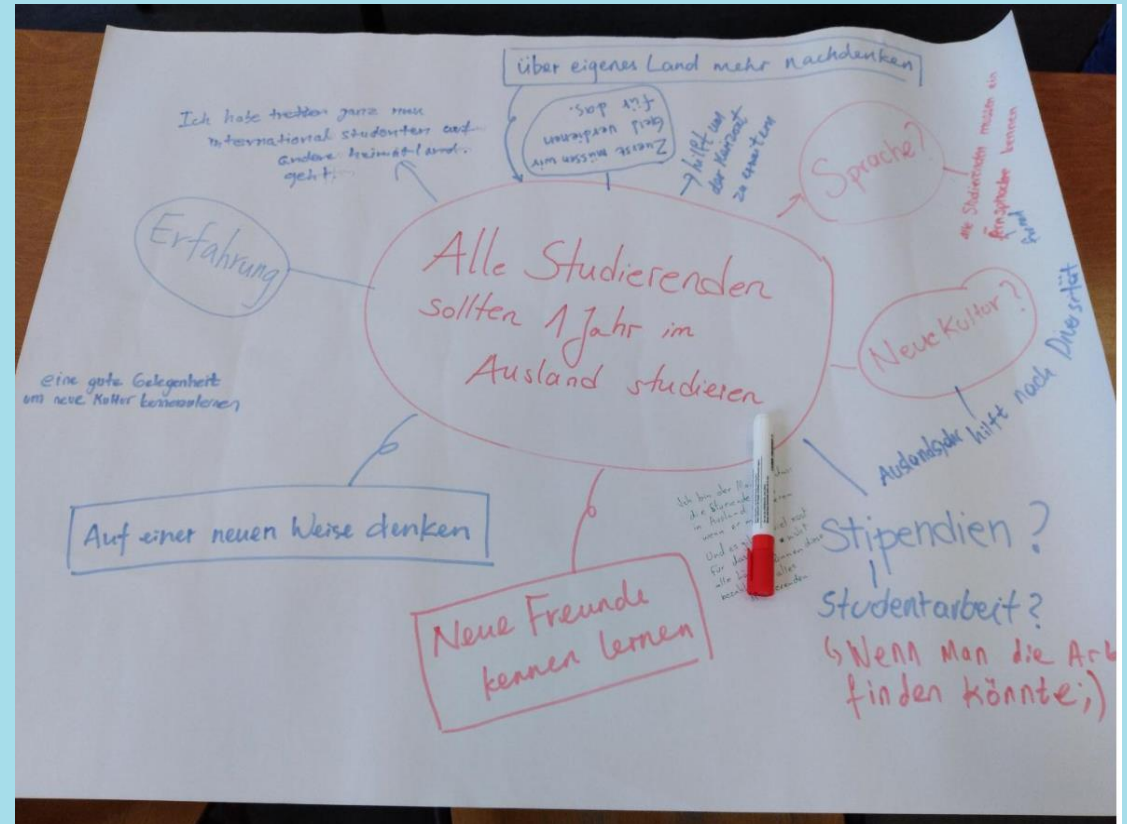 über eigenes Land mehr nachdenken
Ich habe treffen ganz neue
international studenten auf
andere heimatland.
geht.
Zuerst müssen wir
Geld verdienen
für das.
→ hilft uns
der Horizont
zu erweitern
Sprache?
die Studierenden müssen ein
Erfahrung
Alle Studierenden
sollten 1 Jahr im
Ausland studieren
Neue Kultur?
Auslandsjahr hilft nach Diversität
eine gute Gelegenheit
um neue Kultur kennenlernen
Auf einer neuen Weise denken
Neue Freunde
kennen lernen
Ich bin der
die Studie
in Ausland
wenn er
Und es
für das
alle
Stipendien?
Studentarbeit?
↳ Wenn Man die Arb
finden könnte;)